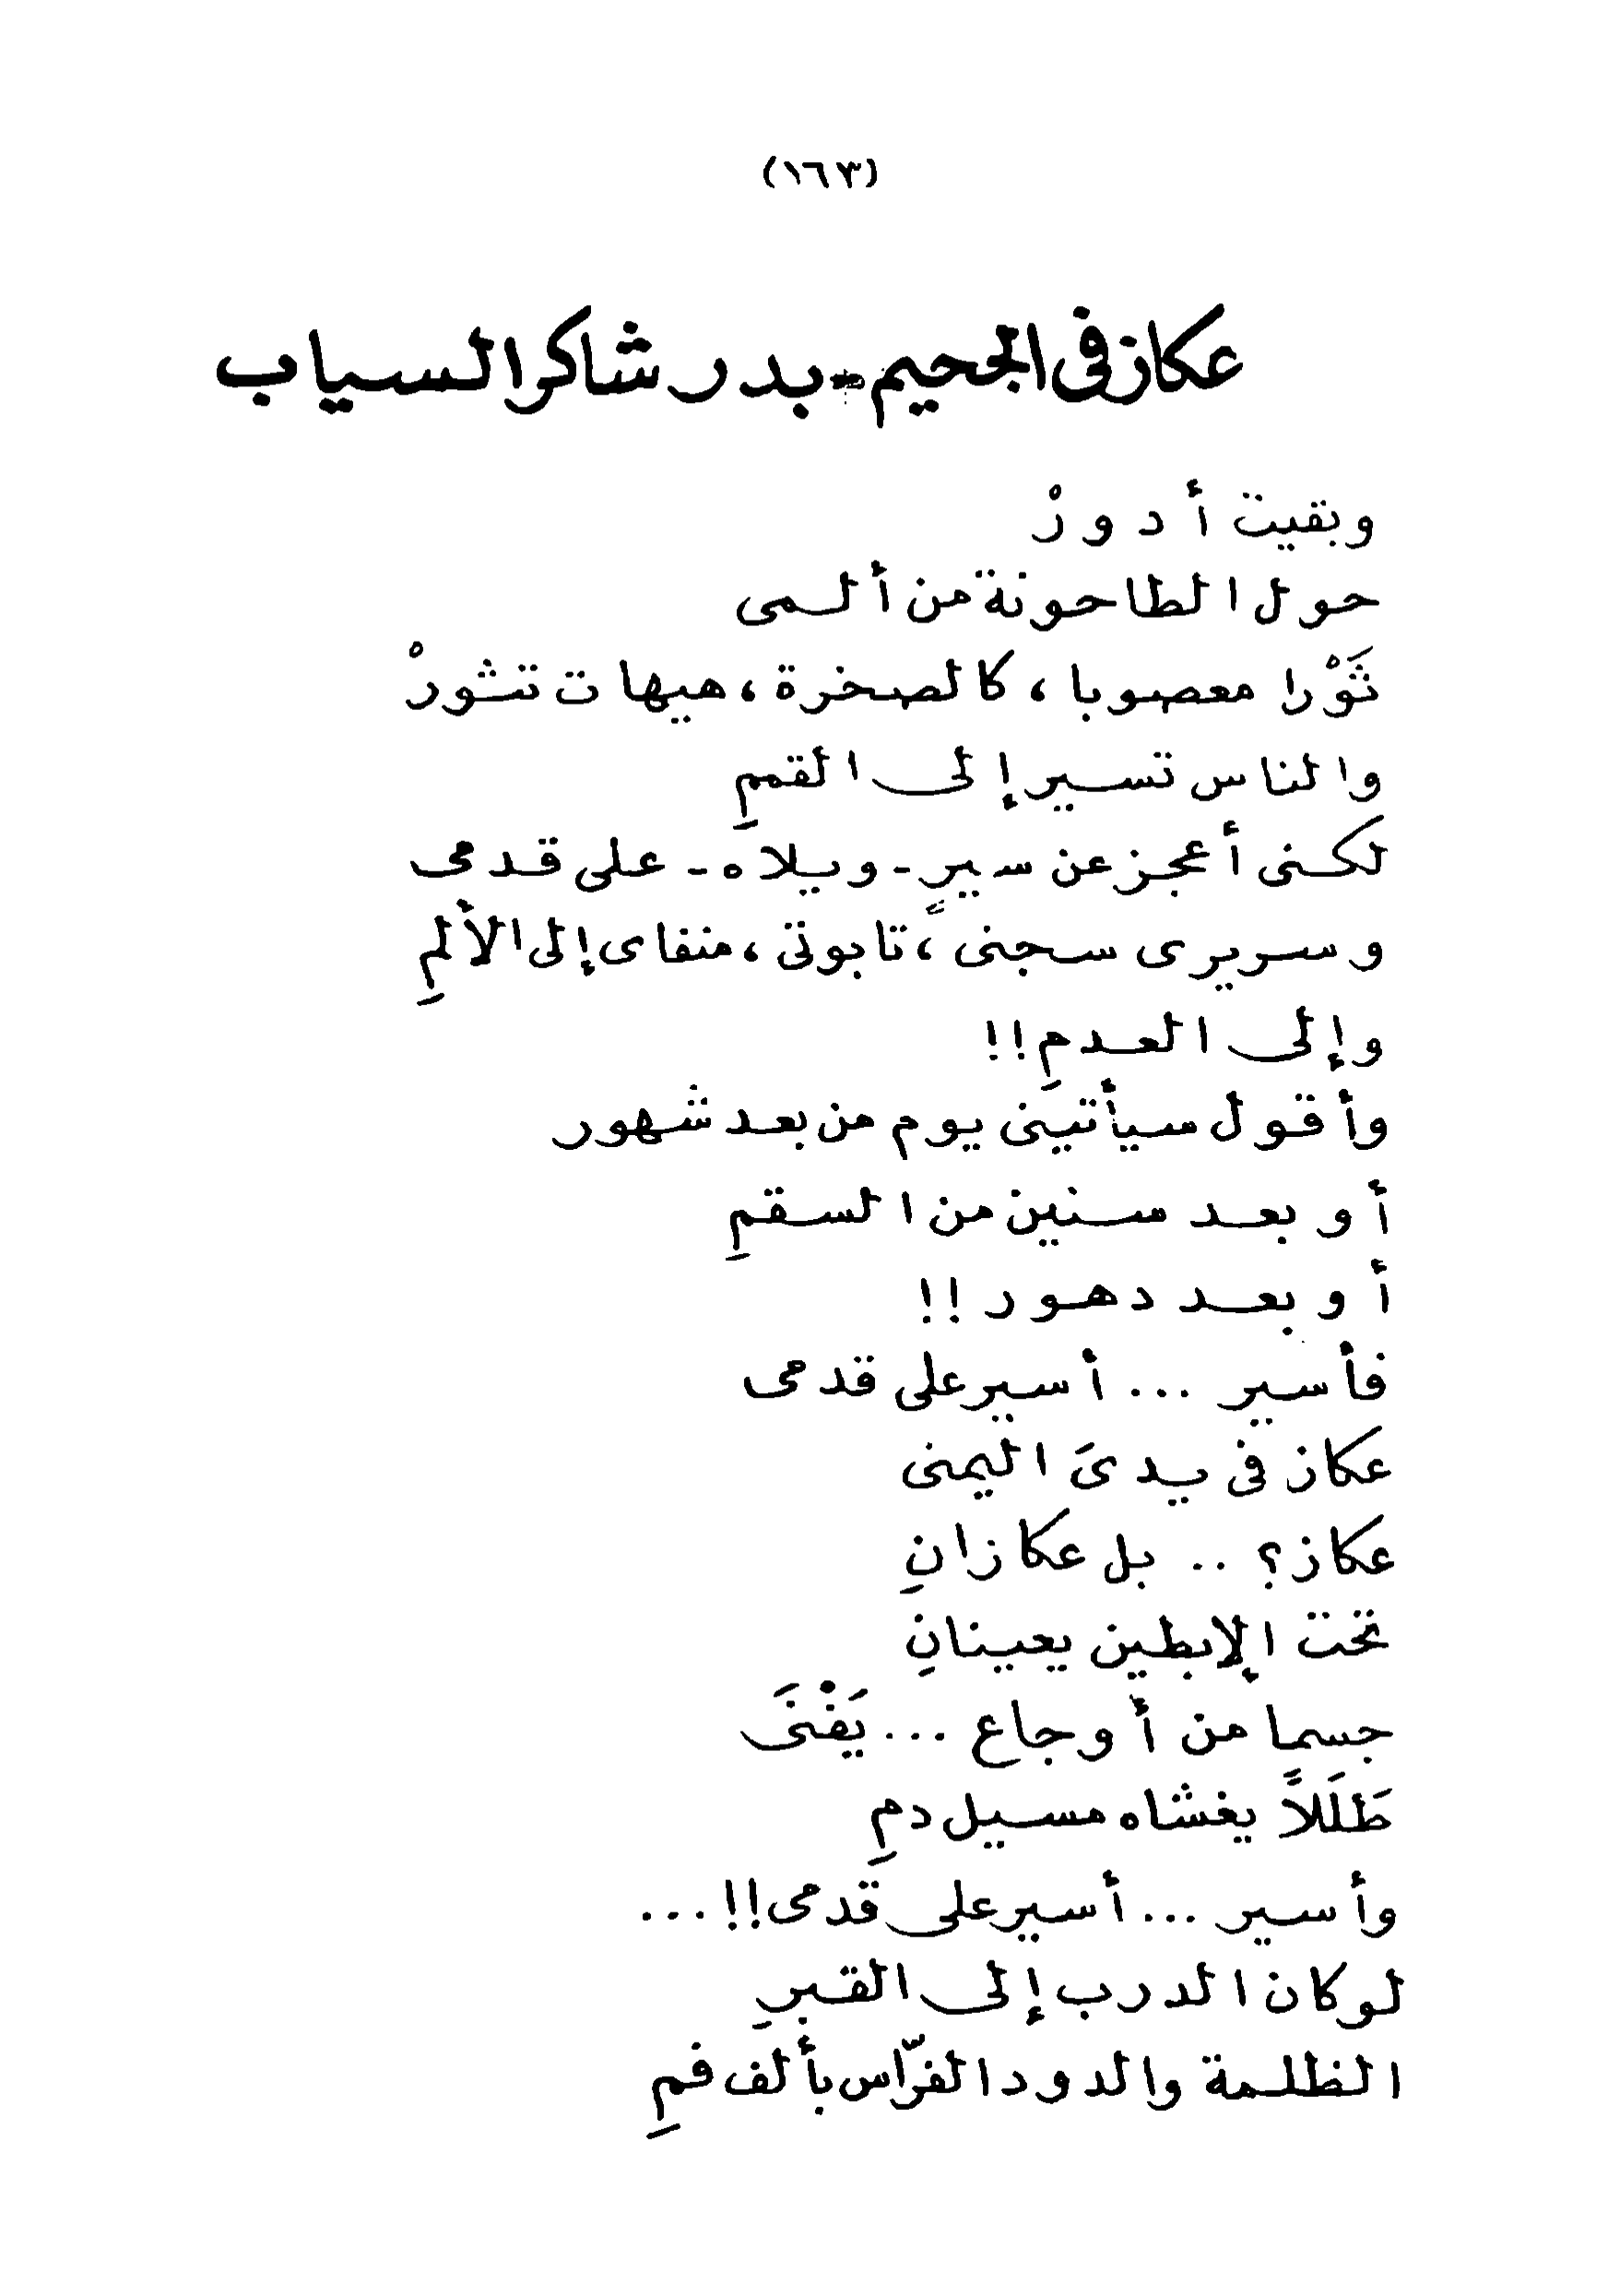 (١٦٣)
عكاز فى الجحيم - بدر شاكر السياب
وبقيت أدورْ
حول الطاحونة من ألمى
ثَوْرا معصوبا ، كالصخرة ، هيهات تثورْ
والناس تسير إلى القممِ
لكنى أعجز عن سيرٍ - ويلاه - على قدمى
وسريرى سجنى ، تابوتى ، منفاى إلى الألمِ
وإلى العدمِ !!
وأقول سيأتينى يوم من بعد شهور
أو بعد سنين من السقمِ
أو بعد دهور !!
فأسير ... أسير على قدمى
عكاز فى يدىَ اليمنى
عكاز ؟ .. بل عكازانِ
تحت الإبطين يعينانِ
جسما من أوجاع ... يَفْنَى
طَلَلاً يغشاه مسيل دمِ
وأسير ... أسير على قدمى !! ...
لو كان الدرب إلى القبرِ
الظلمة والدود الفرّاس بألف فمِ